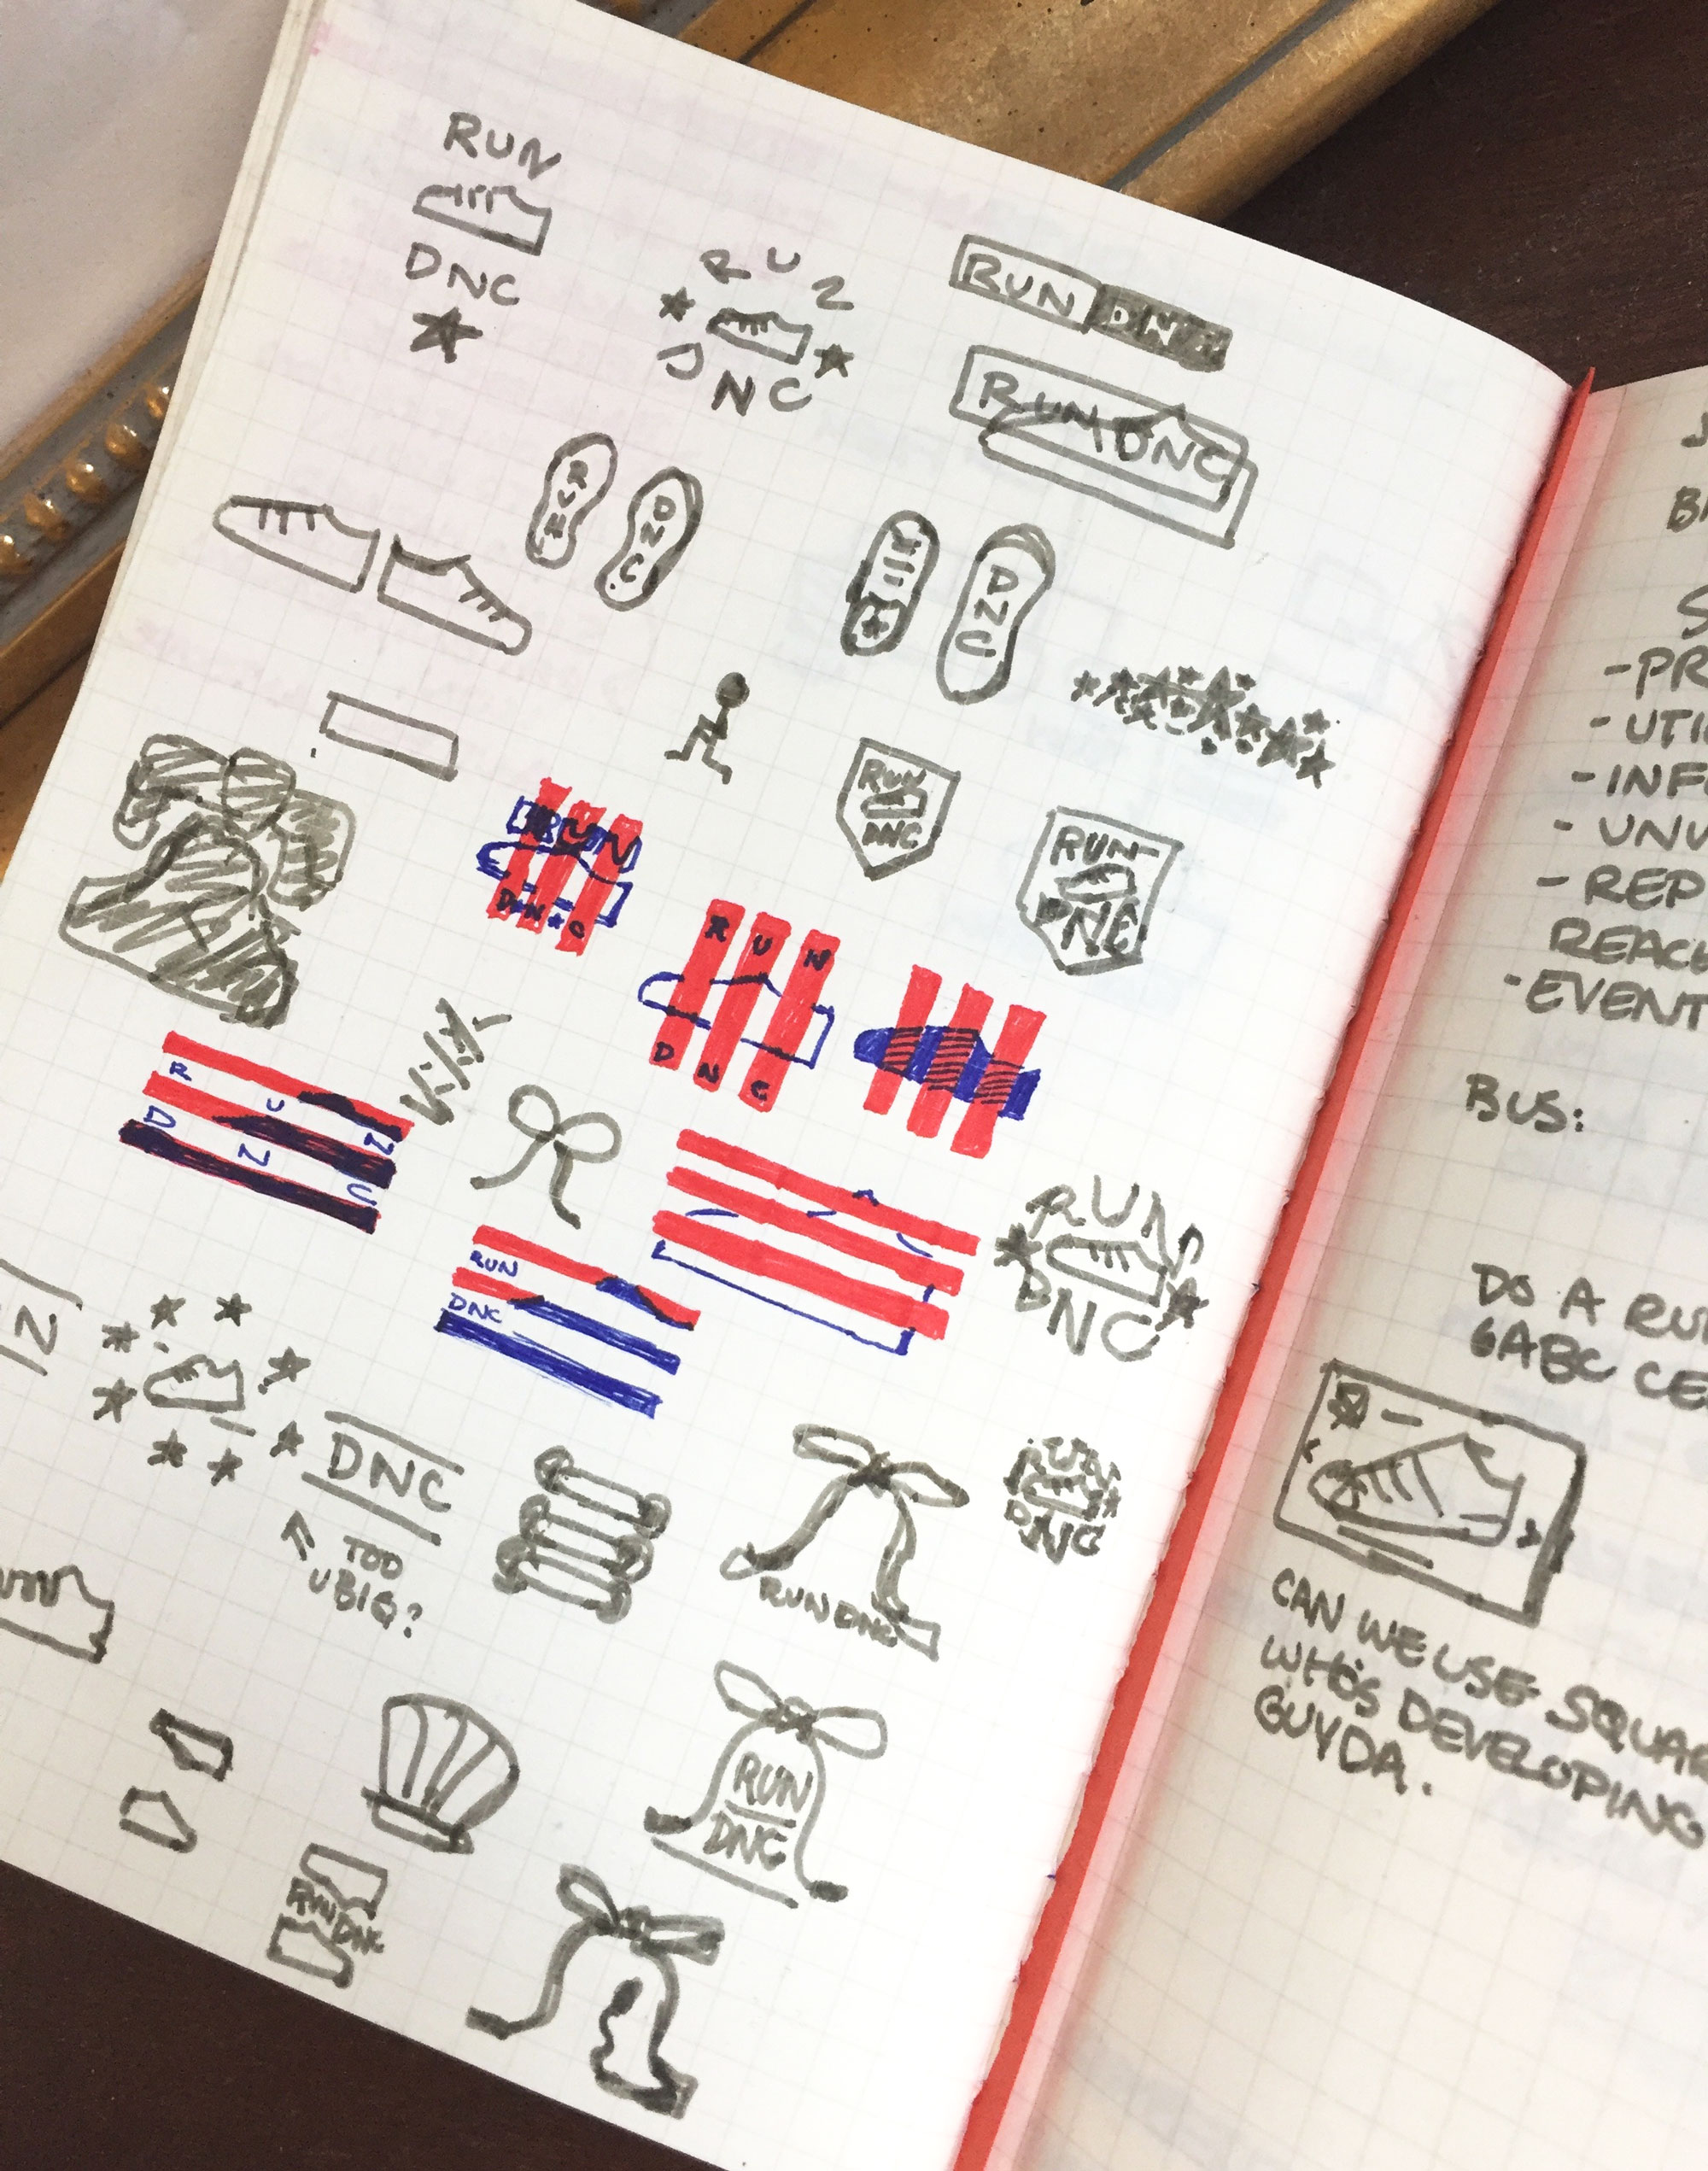 RUN
DNC
RUN
DNC
RUN DNC
RUN DNC
RUN
DNC
DNC
RUN
DNC
RUN-
DNC
RUN
D*N*C
R U N
D N C
R U N
D N C
RUN
DNC
RUN
DNC
DNC
TOO
BIG?
RUN DNC
RUN
DNC
RUN
DNC
RUN
DNC
-PR
-UTI
-INF
- UNU
- REP
REACH
-EVENT
BUS:
DO A RUN
6ABC CE
CAN WE USE SQUAR
WHO'S DEVELOPING
GUYDA.